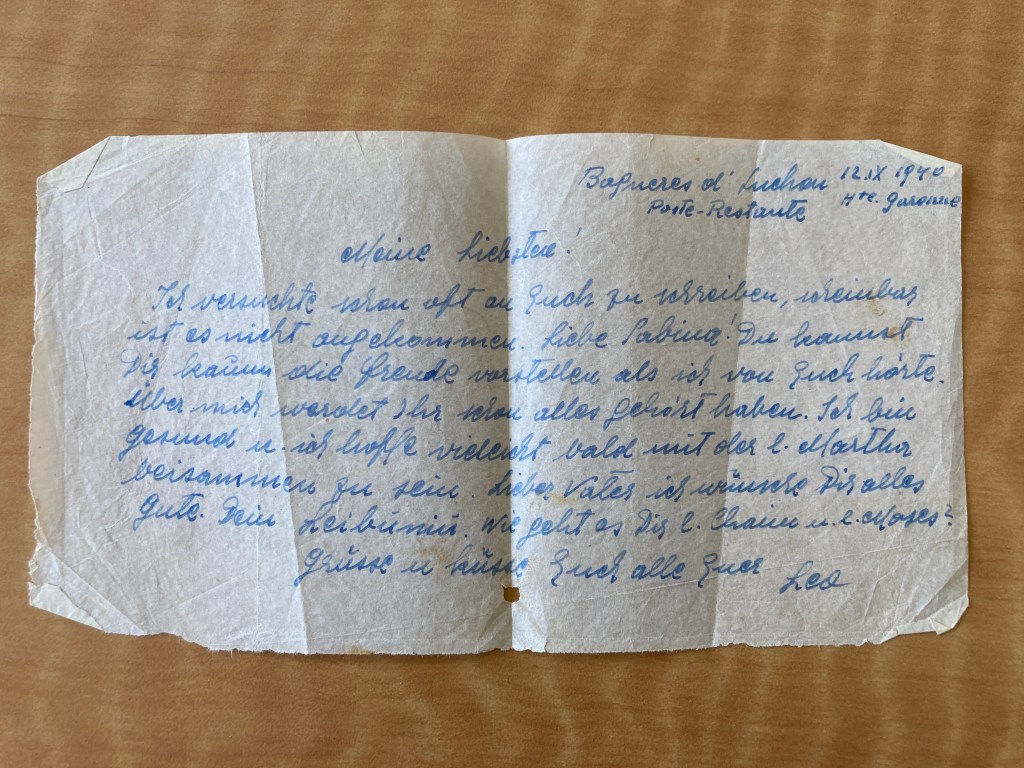 Bagneres d' Luchon 12.IX 1940
Poste-Restante Hte. Garonne
Meine Liebsten!
Ich versuchte schon oft an Euch zu schreiben, scheinbar
ist es nicht angekommen. Liebe Sabina! Du kannst
Dir kaum die Freude vorstellen als ich von Euch hörte.
Über mich werdet Ihr schon alles gehört haben. Ich bin
gesund u. ich hoffe vieleicht bald mit der l. Martha
beisammen zu sein. Lieber Vater ich wünsche Dir alles
Gute. Dein Leibuniu. Wie geht es Dir l. Chaim u. l. Moses?
Grüsse u küsse Euch alle Euer Leo